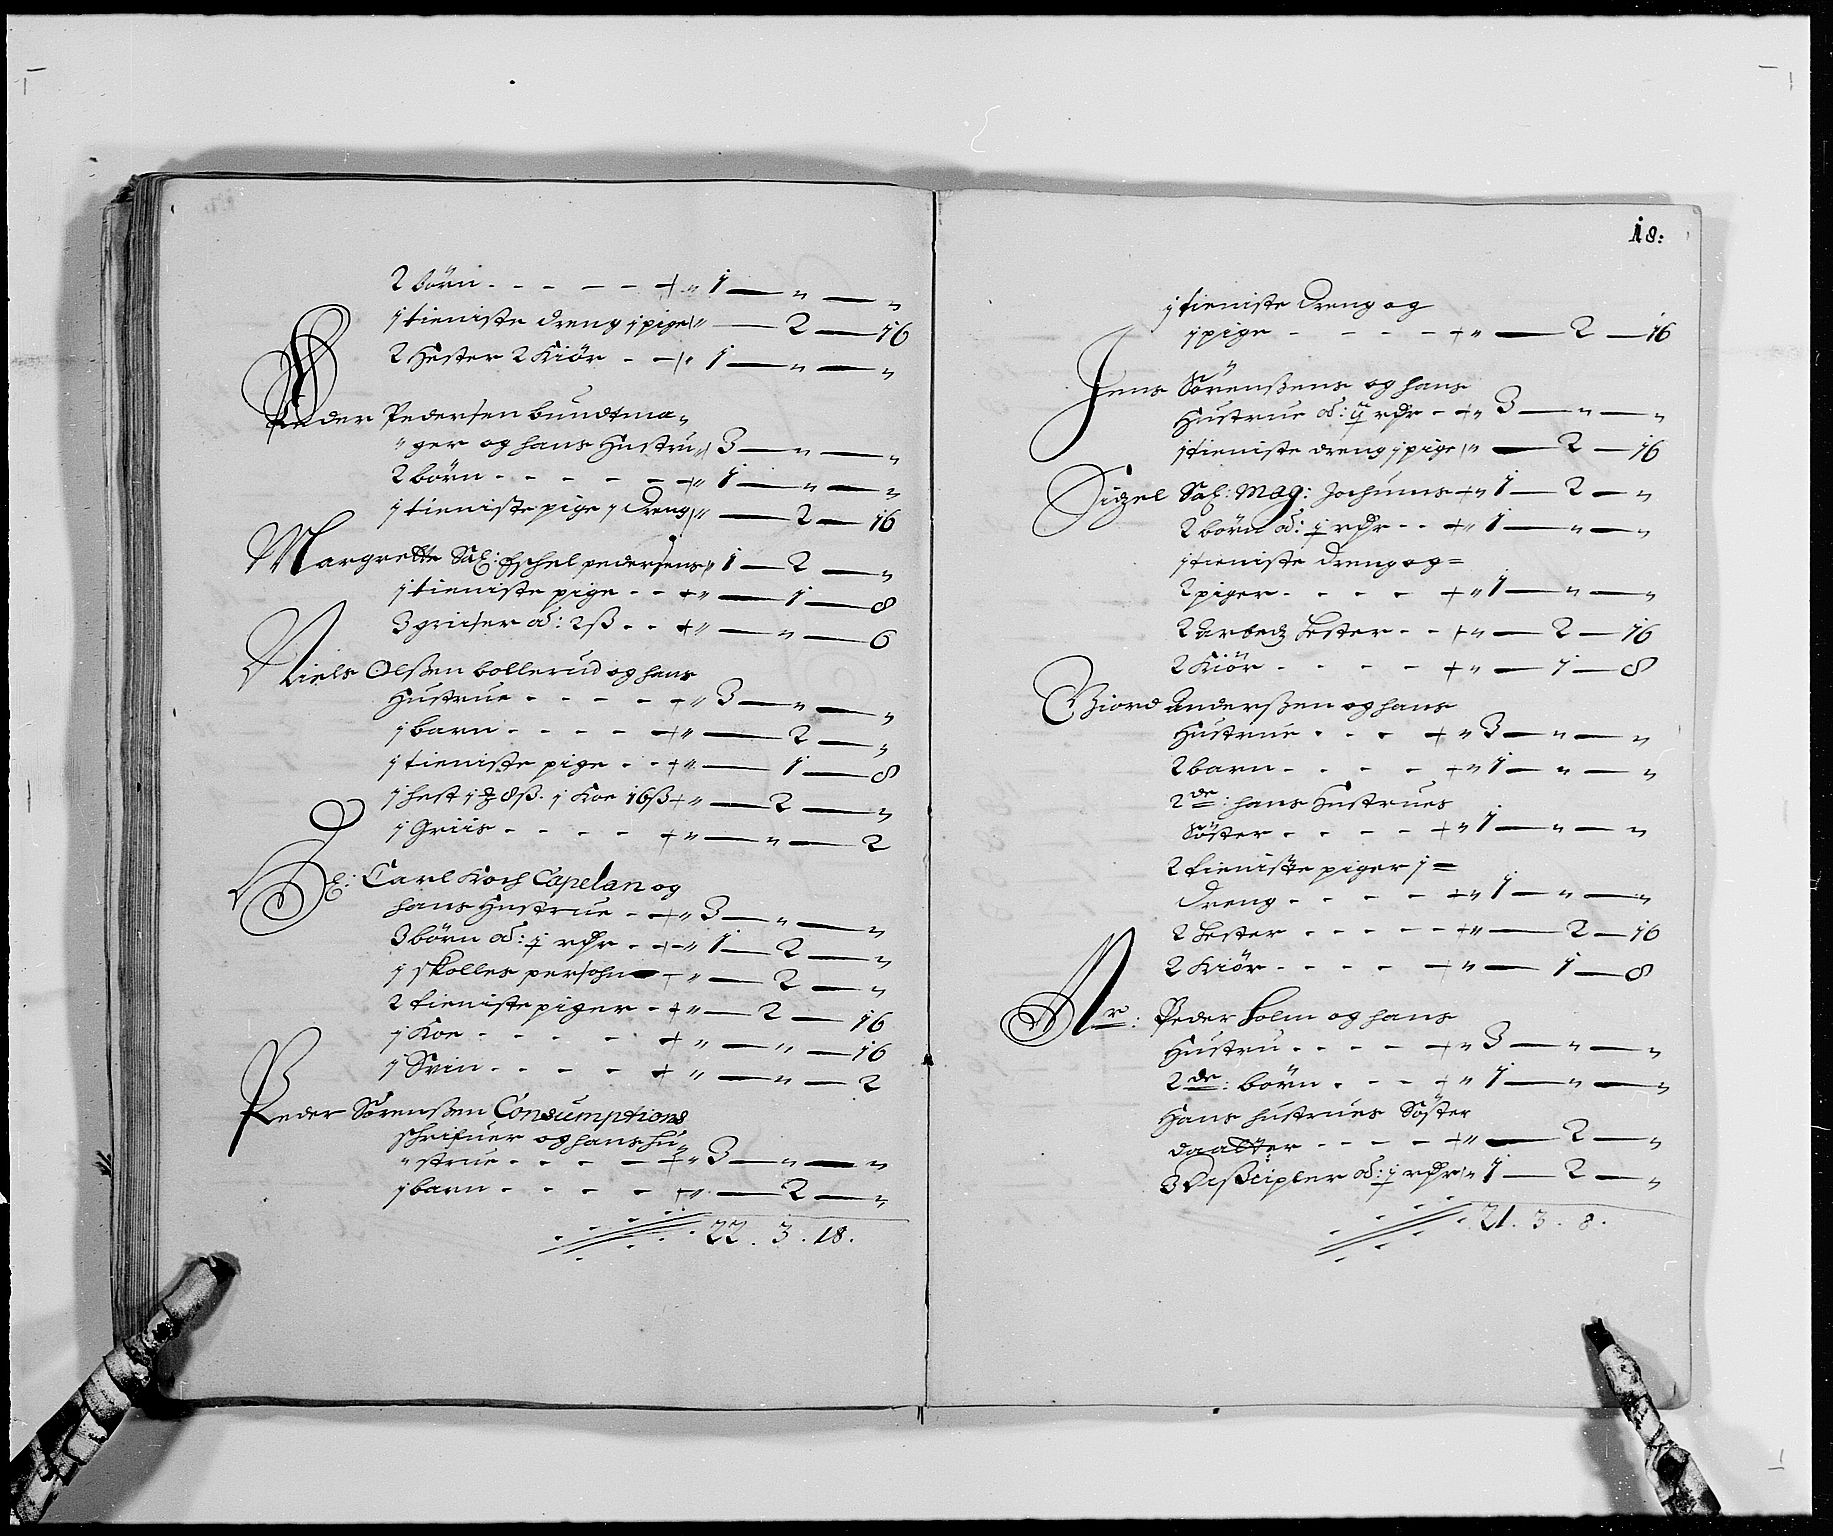 2 börn - - - - - + „ 1 — „ — „
1 tieniste dreng 1 pige + „ — 2 — 16
2 Hester 2 Kiör - - + „ 1 — „ — „
Peder Pedersen bundtma„
„ger og hans Hustru „ 3 — „ — „
2 börn - - - - - + „ 1 — „ — „
1 tieniste pige 1 dreng + „ — 2 — 16
Margrette Sal: Eschel pedersens „ 1 — 2 — „
1 tieniste pige - - + „ — 1 — 8
3 griiser od: 2 ß - - + „ — „ — 6
Niels Olßen bollerud og hans
Hustrue - - - - - + „ 3 — „ — „
1 barn - - - - + „ — 2 — „
1 tieniste pige - - + „ — 1 — 8
1 hest 1 8 ß. 1 Koe 16 ß + „ — 2 — „
1 Griis - - - - + „ — „ — 2
Carl Koch Capelan og
hans Hustrue - - + „ 3 — „ — „
3 börn od: ½ rdr - - + „ 1 — 2 — „
1 skolles persohn — + „ — 2 — „
2 tieniste piger - + „ — 2 — 16
1 Koe - - - - + „ — „ — 16
1 Svin - - - - + „ — „ — 2
Peder Sörenßen Consumptions
schrifuer og hans hu„
„strue - - - - + „ 3 — „ — „
1 barn - - - - + „ — 2 — „
22 . 3 . 18 .
18:
1 tieniste dreng og
1 pige - - - - - + „ — 2 — 16
Jens Sörenßens og hans
Hustrue od: rdr - + „ 3 — „ — „
1 tieniste dreng 1 pige + „ — 2 — 16
Sizel Sal: Mag: Jochums + „ 1 — 2 — „
2 börn od: ½ rdr - - + „ 1 — „ — „
1 tieniste dreng og =
2 piger - - - - + „ 1 — „ — „
2 arbedz hester - - + „ — 2 — 16
2 Kiör - - - - + „ — 1 — 8
Giord Anderßen og hans
Hustrue - - - + „ 3 — „ — „
2 barn - - - - + „ 1 — „ — „
2 de: hans Hustrues
Söster - - - - + „ 1 — „ — „
2 tieniste piger 1 =
dreng - - - - + „ 1 — „ — „
2 hester - - - - - + „ — 2 — 16
2 Kiör - - - - + „ — 1 — 8
Mr: Peder holm og hans
Hustru - - - - + „ 3 — „ — „
2 de: börn - - - + „ 1 — „ — „
Hans hustrues Söster
daatter - - - - + „ — 2 — „
3 Dißcipler od: ½ rdr „ 1 — 2 — „
21 . 3 . 8 .